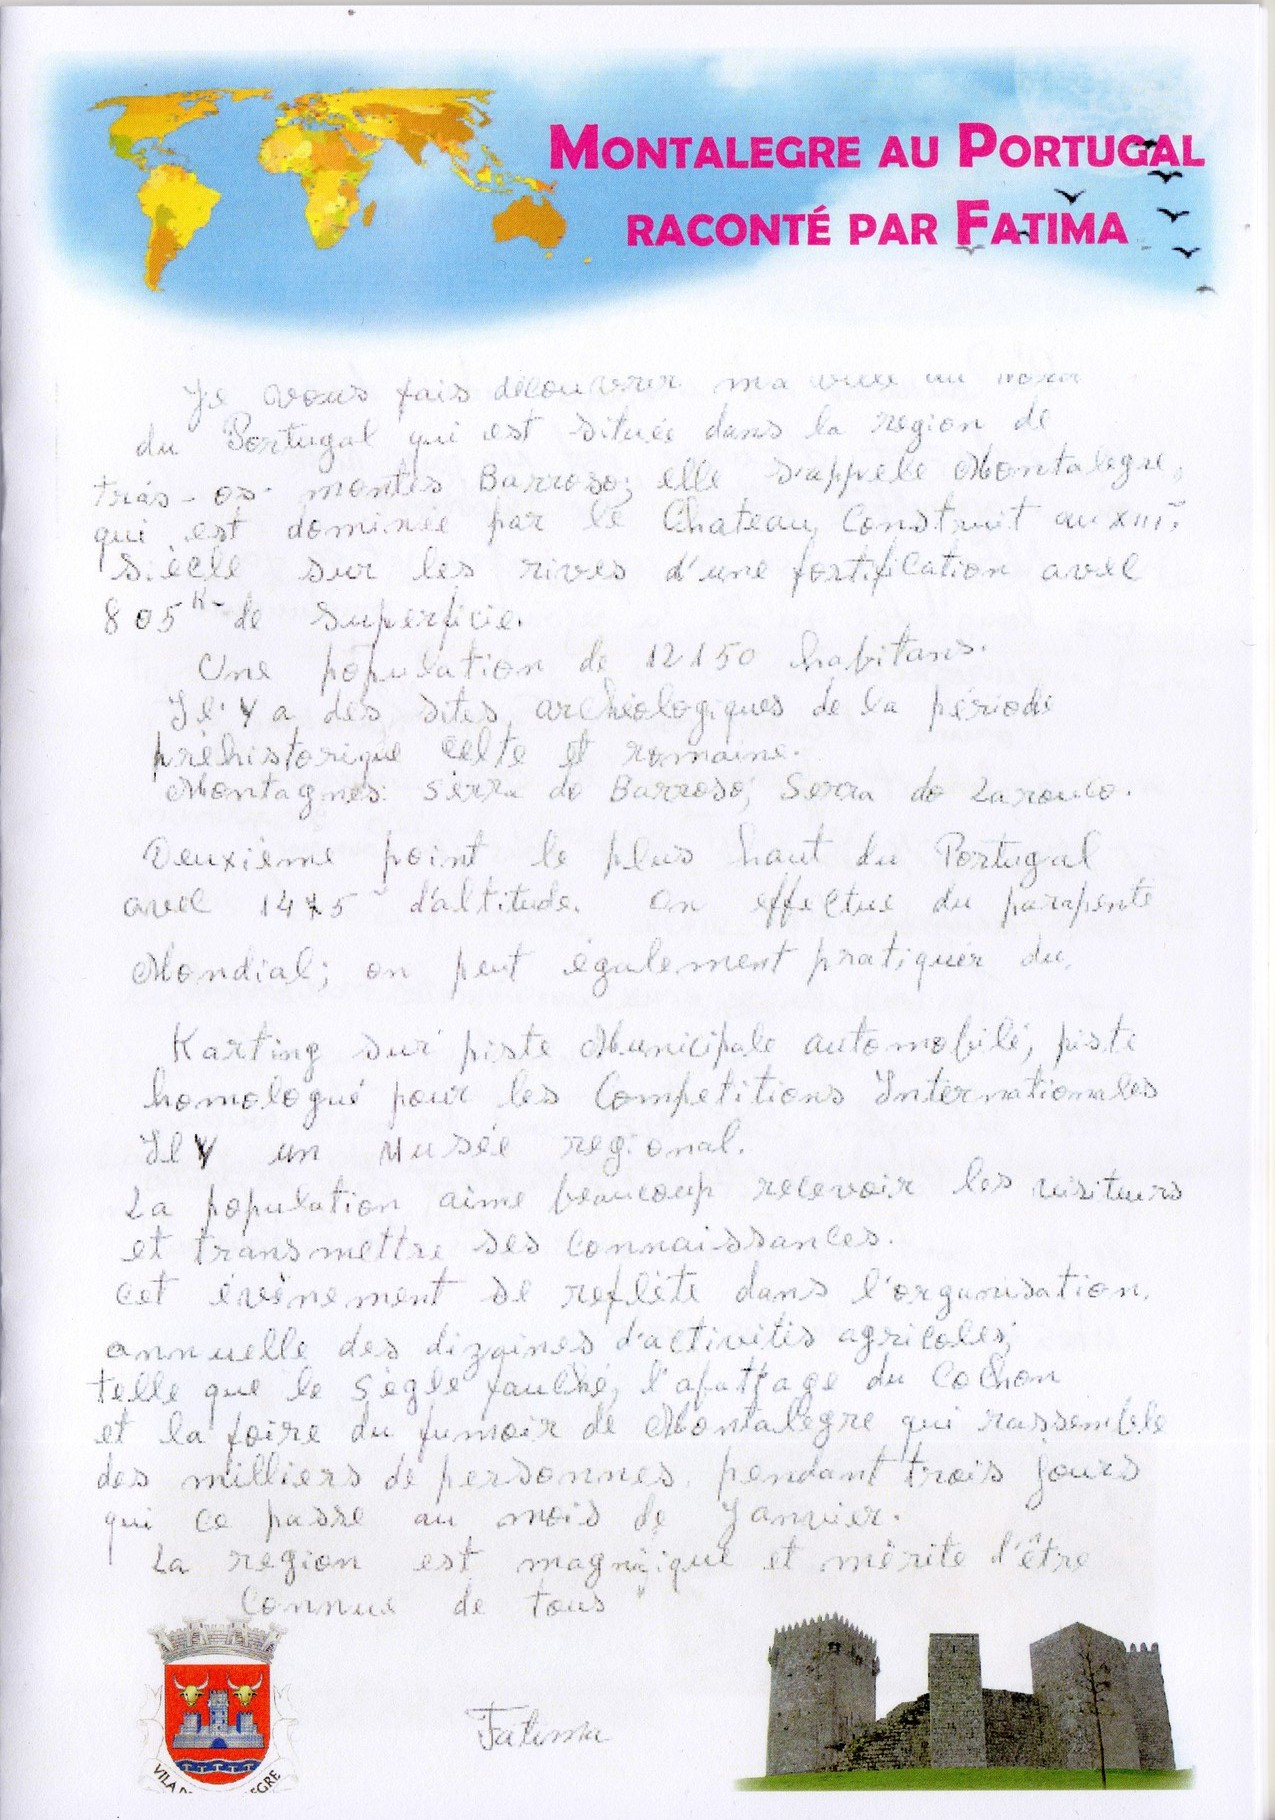 MONTALEGRE AU PORTUGAL
RACONTÉ PAR FATIMA
Je vous fais découvrir ma ville au Nord
du Portugal qui est située dans la region de
trás-os-montes Barroso; elle s'appele Montalegre,
qui est dominée par le Chateau, Construit au XIIIe
siècle sur les rives d'une fortification avec
805 K de superficie.
Une population de 12150 habitans.
Il Y a des sites archéologiques de la période
préhistorique celte et romaine.
Montagnes: Serra do Barroso; Serra do Larouco.
Deuxième point le plus haut du Portugal
avec 1475 d'altitude. On effectue du parapente
Mondial; on peut également pratiquer du
Karting sur piste Municipale automobile; piste
homologué pour les Competitions Internationales
Il Y un Musée regional.
La population aime beaucoup recevoir les visiteurs
et transmettre ses connaissances.
cet évènement se reflète dans l'organisation
annuelle des dizaines d'activités agricoles;
telle que le sègle fauché, l'abattage du Cochon
et la foire du fumoir de Montalegre qui rassemble
des milliers de personnes, pendant trois jours
qui ce passe au mois de Janvier.
La region est magnifique et mérite d'être
Connue de tous
Fatima
VILA EGRE